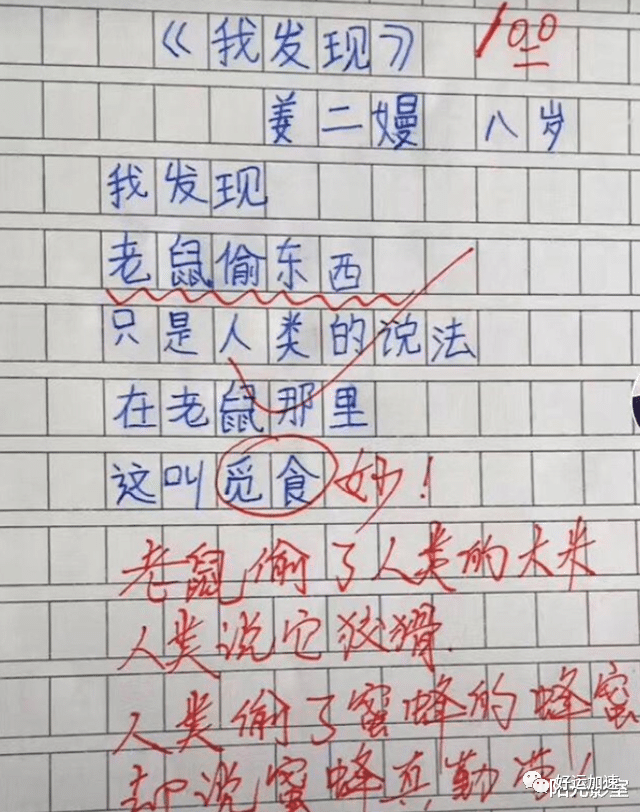 《我发现》 100
姜二嫚 八岁
我发现
老鼠偷东西
只是人类的说法
在老鼠那里
这叫觅食 妙！
老鼠偷了人类的大米
人类说它狡猾.
人类偷了蜜蜂的蜂蜜
却说蜜蜂真勤劳！
好运加速
阳光影室